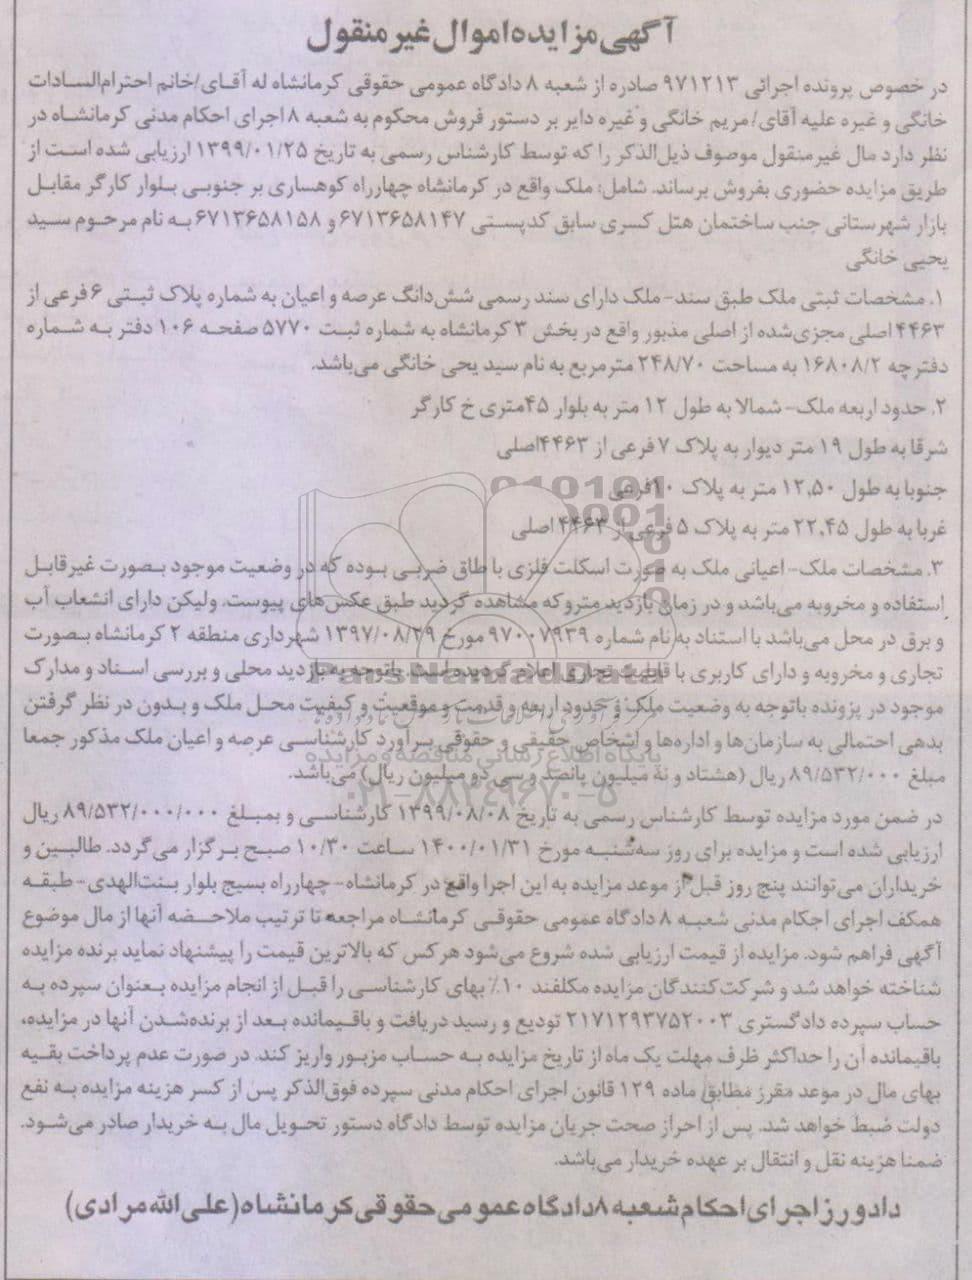 آگهی مزایده اموال غیر منقول
در خصوص پرونده اجرائی ۹۷۱۲۱۳ صادره از شعبه ۸ دادگاه عمومی حقوقی کرمانشاه له آقای/خانم احترام‌السادات
خانگی و غیره علیه آقای/مریم خانگی و غیره دایر بر دستور فروش محکوم به شعبه ۸ اجرای احکام مدنی کرمانشاه در
نظر دارد مال غیر منقول موصوف ذیل‌الذکر را که توسط کارشناس رسمی به تاریخ ۱۳۹۹/۰۱/۲۵ ارزیابی شده است از
طریق مزایده حضوری بفروش برساند. شامل: ملک واقع در کرمانشاه چهارراه کوهساری بر جنوبی بلوار کارگر مقابل
بازار شهرستانی جنب ساختمان هتل کسری سابق کدپستی ۶۷۱۳۶۵۸۱۴۷ و ۶۷۱۳۶۵۸۱۵۸ به نام مرحوم سید
یحیی خانگی
۱. مشخصات ثبتی ملک طبق سند- ملک دارای سند رسمی شش‌دانگ عرصه و اعیان به شماره پلاک ثبتی ۶ فرعی از
۴۴۶۳ اصلی مجزی‌شده از اصلی مذبور واقع در بخش ۳ کرمانشاه به شماره ثبت ۵۷۷۰ صفحه ۱۰۶ دفتر به شماره
دفترچه ۱۶۸۰۸/۲ به مساحت ۲۴۸/۷۰ مترمربع به نام سید یحی خانگی می‌باشد.
۲. حدود اربعه ملک- شمالا به طول ۱۲ متر به بلوار ۴۵متری خ کارگر
شرقا به طول ۱۹ متر دیوار به پلاک ۷ فرعی از ۴۴۶۳اصلی
جنوبا به طول ۱۲,۵۰ متر به پلاک ۱۰فرعی
غربا به طول ۲۲,۴۵ متر به پلاک ۵ فرعی از ۴۴۶۳ اصلی
۳. مشخصات ملک- اعیانی ملک به صورت اسکلت فلزی با طاق ضربی بوده که در وضعیت موجود بصورت غیرقابل
استفاده و مخروبه می‌باشد و در زمان بازدید متروکه مشاهده گردید طبق عکس‌های پیوست. ولیکن دارای انشعاب آب
و برق در محل می‌باشد با استناد به نام شماره ۹۷۰۰۷۹۳۹ مورخ ۱۳۹۷/۰۸/۲۹ شهرداری منطقه ۲ کرمانشاه بصورت
تجاری و مخروبه و دارای کاربری با قابلیت تجاری اعلام گردیده است. باتوجه به بازدید محلی و بررسی اسناد و مدارک
موجود در پرونده باتوجه به وضعیت ملک و حدود اربعه و قدمت و موقعیت و کیفیت محل ملک و بدون در نظر گرفتن
بدهی احتمالی به سازمان‌ها و اداره‌ها و اشخاص حقیقی و حقوقی برآورد کارشناسی عرصه و اعیان ملک مذکور جمعا
مبلغ ۸۹/۵۳۲/۰۰۰ ریال (هشتاد و نه میلیون پانصد و سی دو میلیون ریال) می‌باشد.
در ضمن مورد مزایده توسط کارشناس رسمی به تاریخ ۱۳۹۹/۰۸/۰۸ کارشناسی و بمبلغ ۸۹/۵۳۲/۰۰۰/۰۰۰ ریال
ارزیابی شده است و مزایده برای روز سه‌شنبه مورخ ۱۴۰۰/۰۱/۳۱ ساعت ۱۰/۳۰ صبح برگزار می‌گردد. طالبین و
خریداران می‌توانند پنج روز قبل از موعد مزایده به این اجرا واقع در کرمانشاه- چهارراه بسیج بلوار بنت‌الهدی- طبقه
همکف اجرای احکام مدنی شعبه ۸ دادگاه عمومی حقوقی کرمانشاه مراجعه تا ترتیب ملاحضه آنها از مال موضوع
آگهی فراهم شود. مزایده از قیمت ارزیابی شده شروع می‌شود هر کس که بالاترین قیمت را پیشنهاد نماید برنده مزایده
شناخته خواهد شد و شرکت‌کنندگان مزایده مکلفند ۱۰٪ بهای کارشناسی را قبل از انجام مزایده بعنوان سپرده به
حساب سپرده دادگستری ۲۱۷۱۲۹۳۷۵۲۰۰۳ تودیع و رسید دریافت و باقیمانده بعد از برنده‌شدن آنها در مزایده،
باقیمانده آن را حداکثر ظرف مهلت یک ماه از تاریخ مزایده به حساب مزبور واریز کند. در صورت عدم پرداخت بقیه
بهای مال در موعد مقرر مطابق ماده ۱۲۹ قانون اجرای احکام مدنی سپرده فوق‌الذکر پس از کسر هزینه مزایده به نفع
دولت ضبط خواهد شد. پس از احراز صحت جریان مزایده توسط دادگاه دستور تحویل مال به خریدار صادر می‌شود.
ضمنا هزینه نقل و انتقال بر عهده خریدار می‌باشد.
دادورز اجرای احکام شعبه ۸ دادگاه عمومی حقوقی کرمانشاه (علی الله مرادی)
پایگاه اطلاع رسانی مناقصه و مزایده
۰۲۱-۸۸۳۴۹۶۷۰-۵